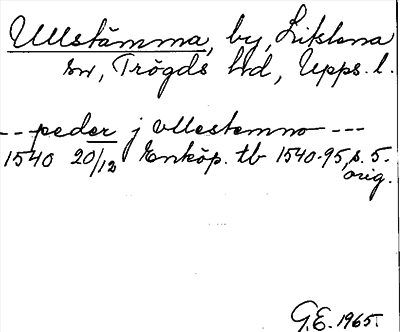 Ullstämma, by, Litslena
sn, Trögds hd, Upps. l.
--- peder j vllestemno ---
1540 20/12 Enköp. tb 1540-95, s. 5.
orig.
G.E. 1965.